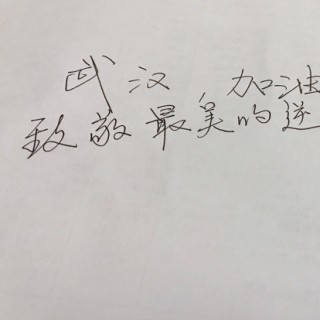 武汉，加油
致敬最美的逆